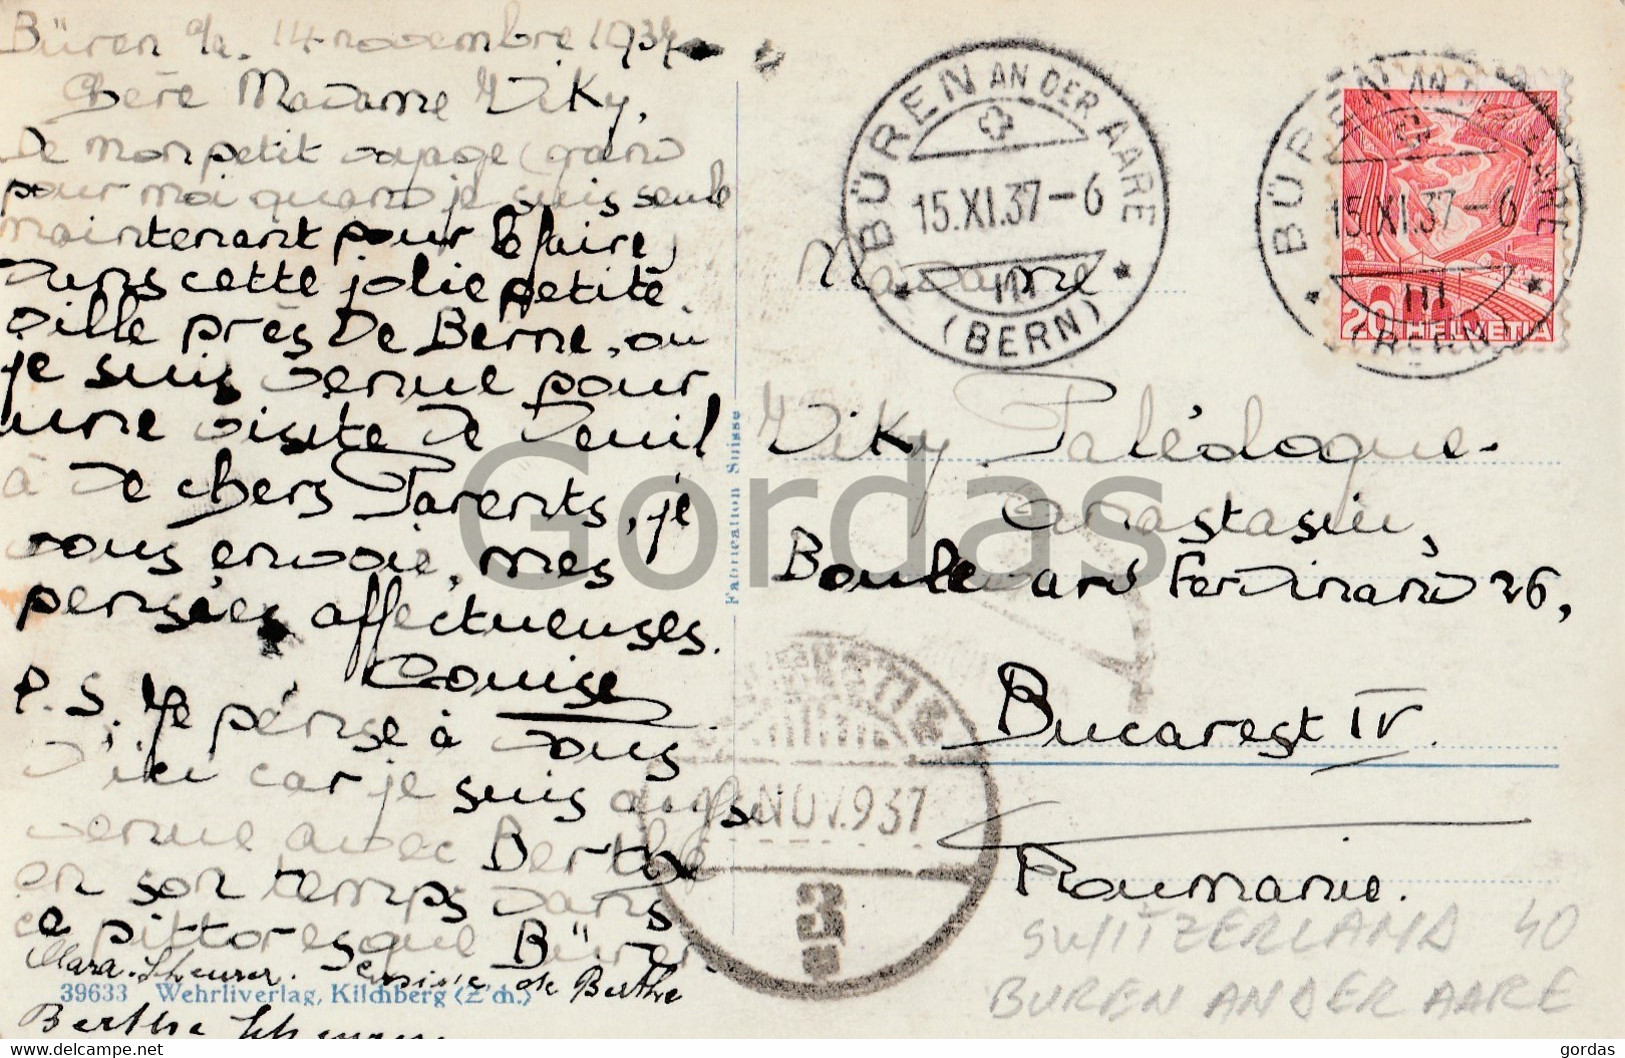 Büren a/a. 14 novembre 1937
Chère Madame Viky,
De mon petit voyage (grand
pour moi quand je suis seule
maintenant pour le faire)
dans cette jolie petite
ville près de Berne, où
je suis venue pour
une visite de deuil
à de chers Parents, je
vous envoie, mes
pensées affectueuses.
Louise
P.S. Je pense à vous
d'ici car je suis aussi
venue avec Berthe
en son temps dans
ce pittoresque Büren.
Clara Scheurer. cousine de Berthe
39633 Wehrliverlag, Kilchberg (Zch.)
Berthe
Fabrication Suisse
BÜREN AN DER AARE
15.XI.37-6
III
(BERN)
BÜREN AN DER AARE
15.XI.37-6
III
(BERN)
20 HELVETIA
Madame
Viky Paléologue-
Anastasiu,
Boulevard Ferdinand 26,
Bucarest IV.
Roumanie.
NOV. 937
SWITZERLAND 40
BUREN AN DER AARE
Gordas
www.delcampe.net
gordas